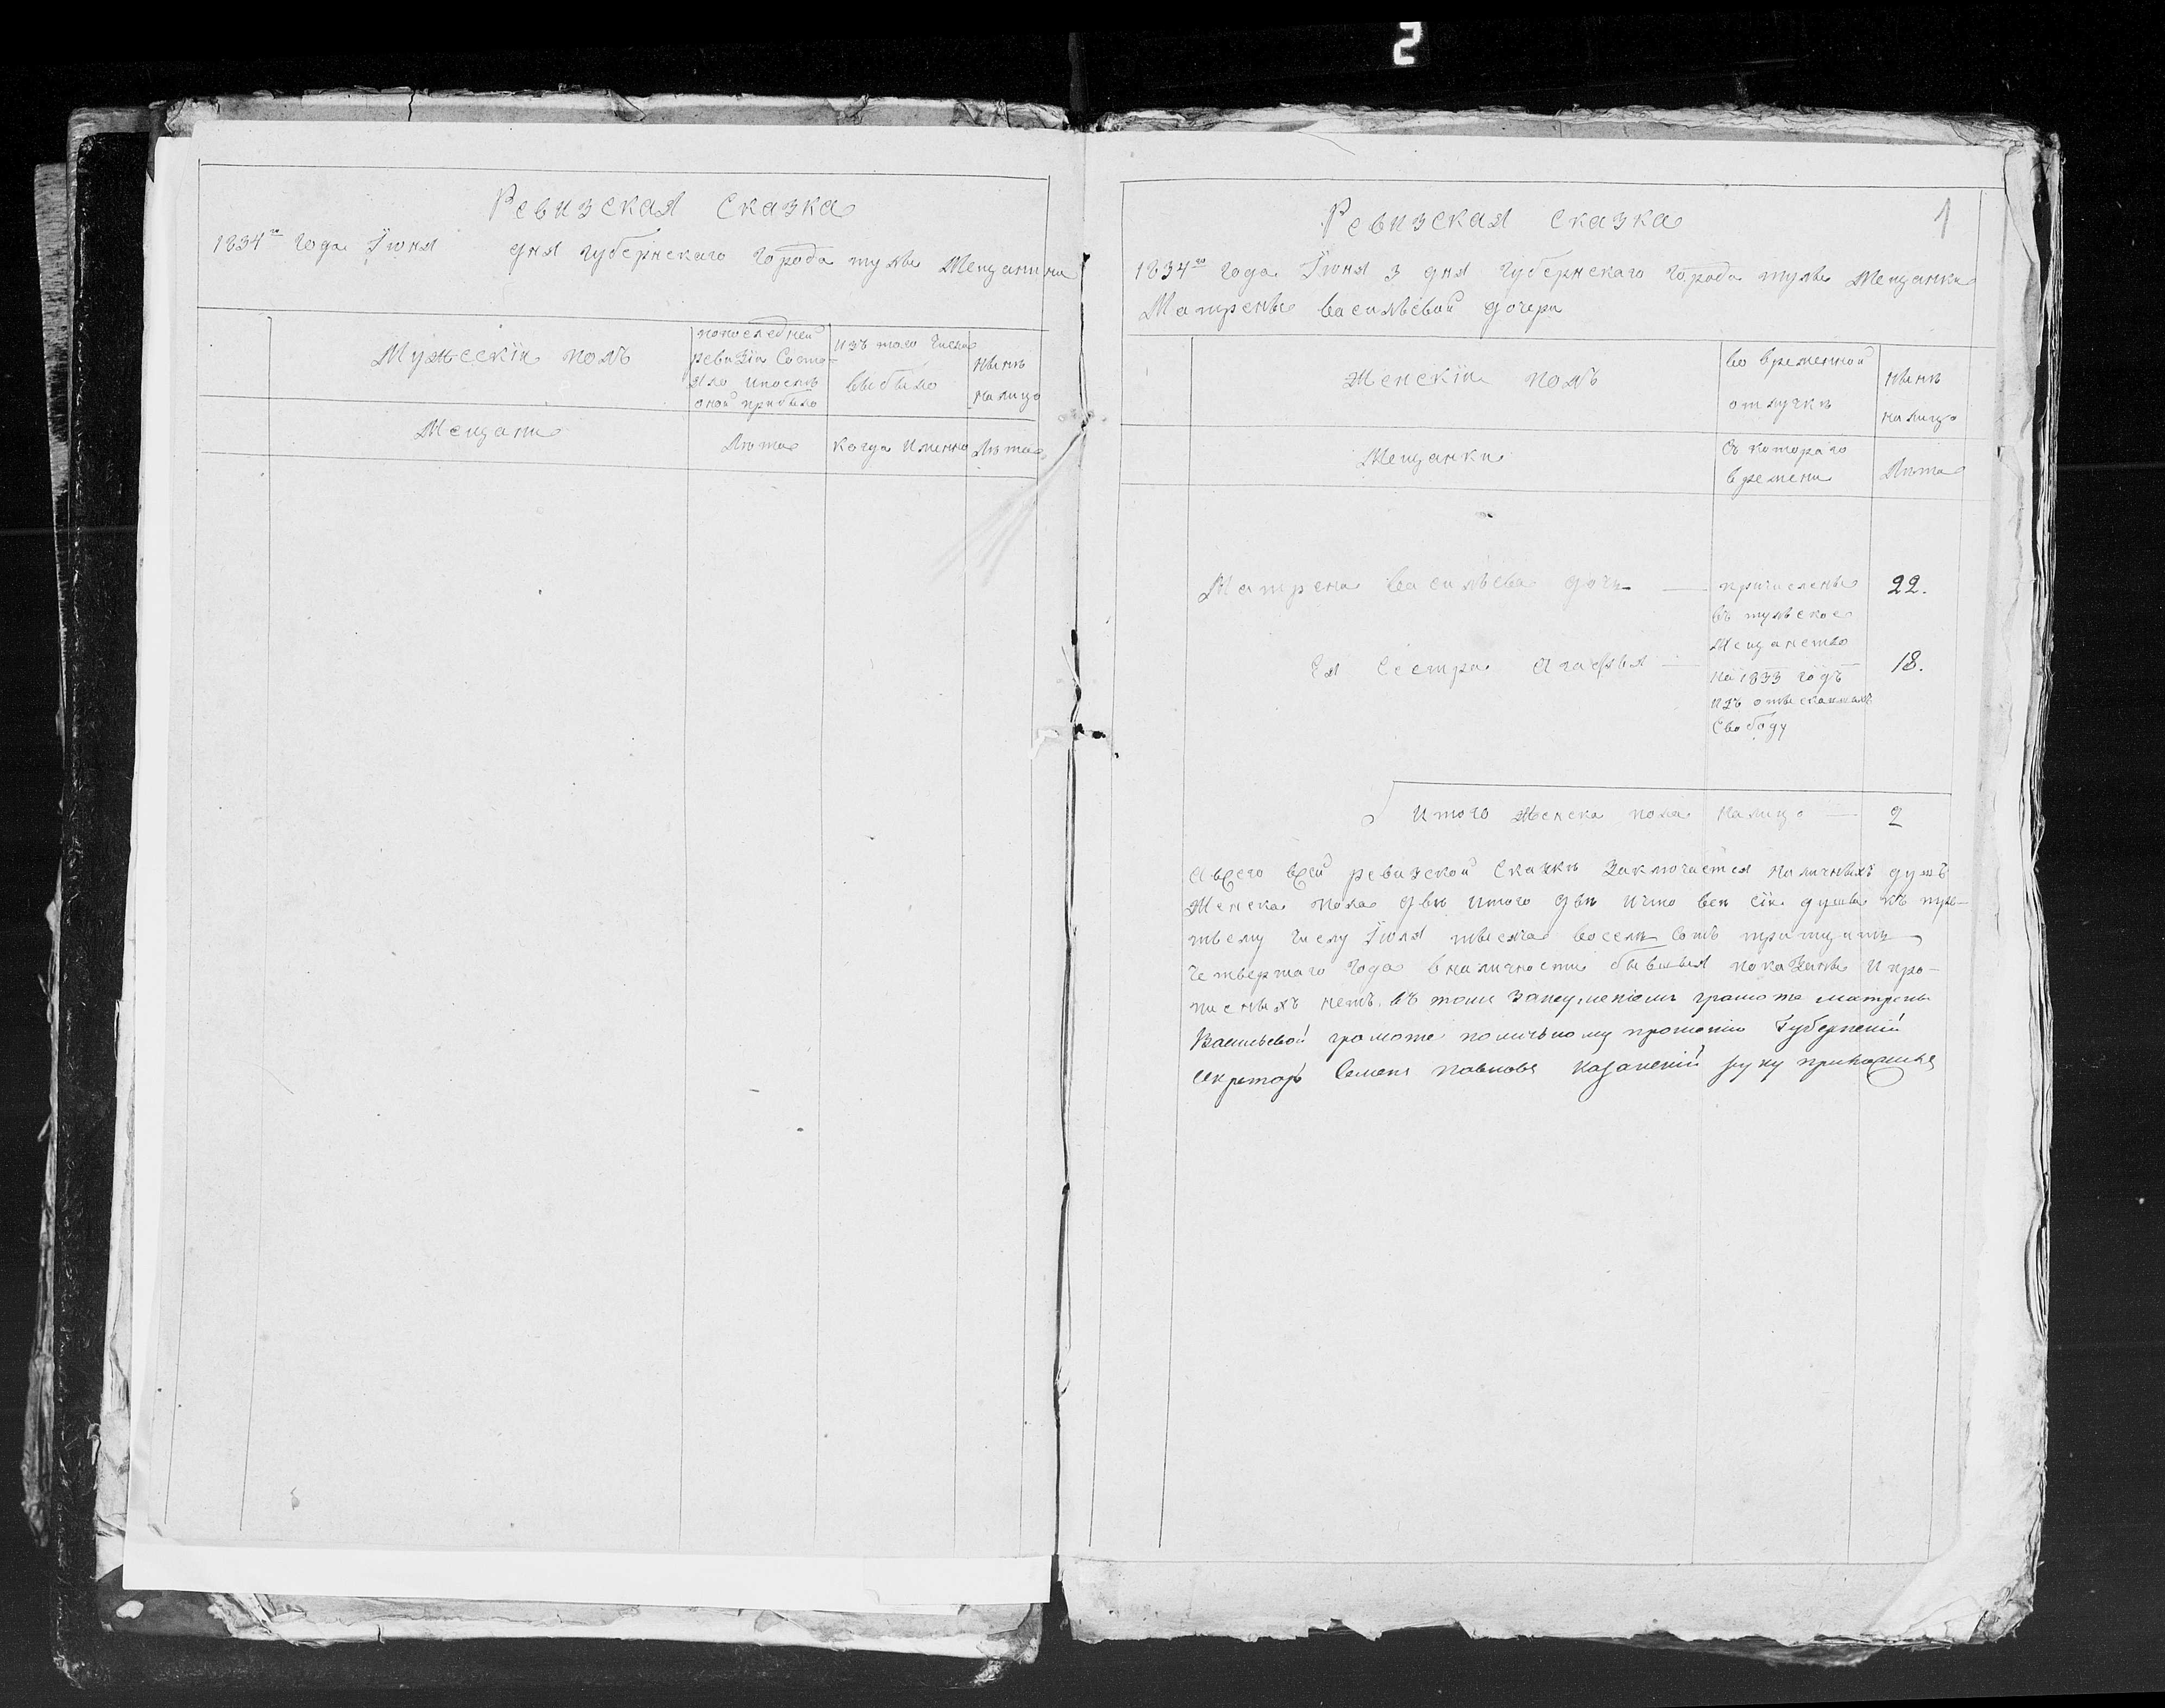 2
Ревизская Сказка
1834го года Iюня дня губернскаго города тулы Мещанина
Мужескiй полъ
попоследней
ревизiи Состо-
яло ипослѣ
оной прибыло
Изъ того Числа
выбыло
Нынѣ
налицо
Мещани
Лѣта
Когда Именно
Лѣта
1
Ревизская сказка
1834го года Iюня 3 дня губернскаго города тулы Мещанки
Матрены васильевой дочери
Женскiй полъ
во временной
отлучкѣ
Нынѣ
налицо
Мещанки
Съ котораго
времени
Лѣта
Матрена васильева дочь
причислены
въ тульское
Мещанство
на 1833 годъ
изъ отыскавшихъ
Свободу
22.
Ея Сестра Агафья
18.
Итого женска пола налицо
2
Авсего всей ревизской Сказки Заключается наличныхъ душъ
Женска пола двѣ итого двѣ Ичто всѣ сiи души къ тре-
тьему числу Iюля тысяча восемь сотъ тритцать
четвертаго года вналичности бывшыя показаны Ипро-
писныхъ нетъ, въ томъ Занеуменiемъ грамоте матрены
Васильевой грамоте поличьному прошенiю Губернскiй
секретарь Семенъ павловъ Казанскiй руку приложилъ